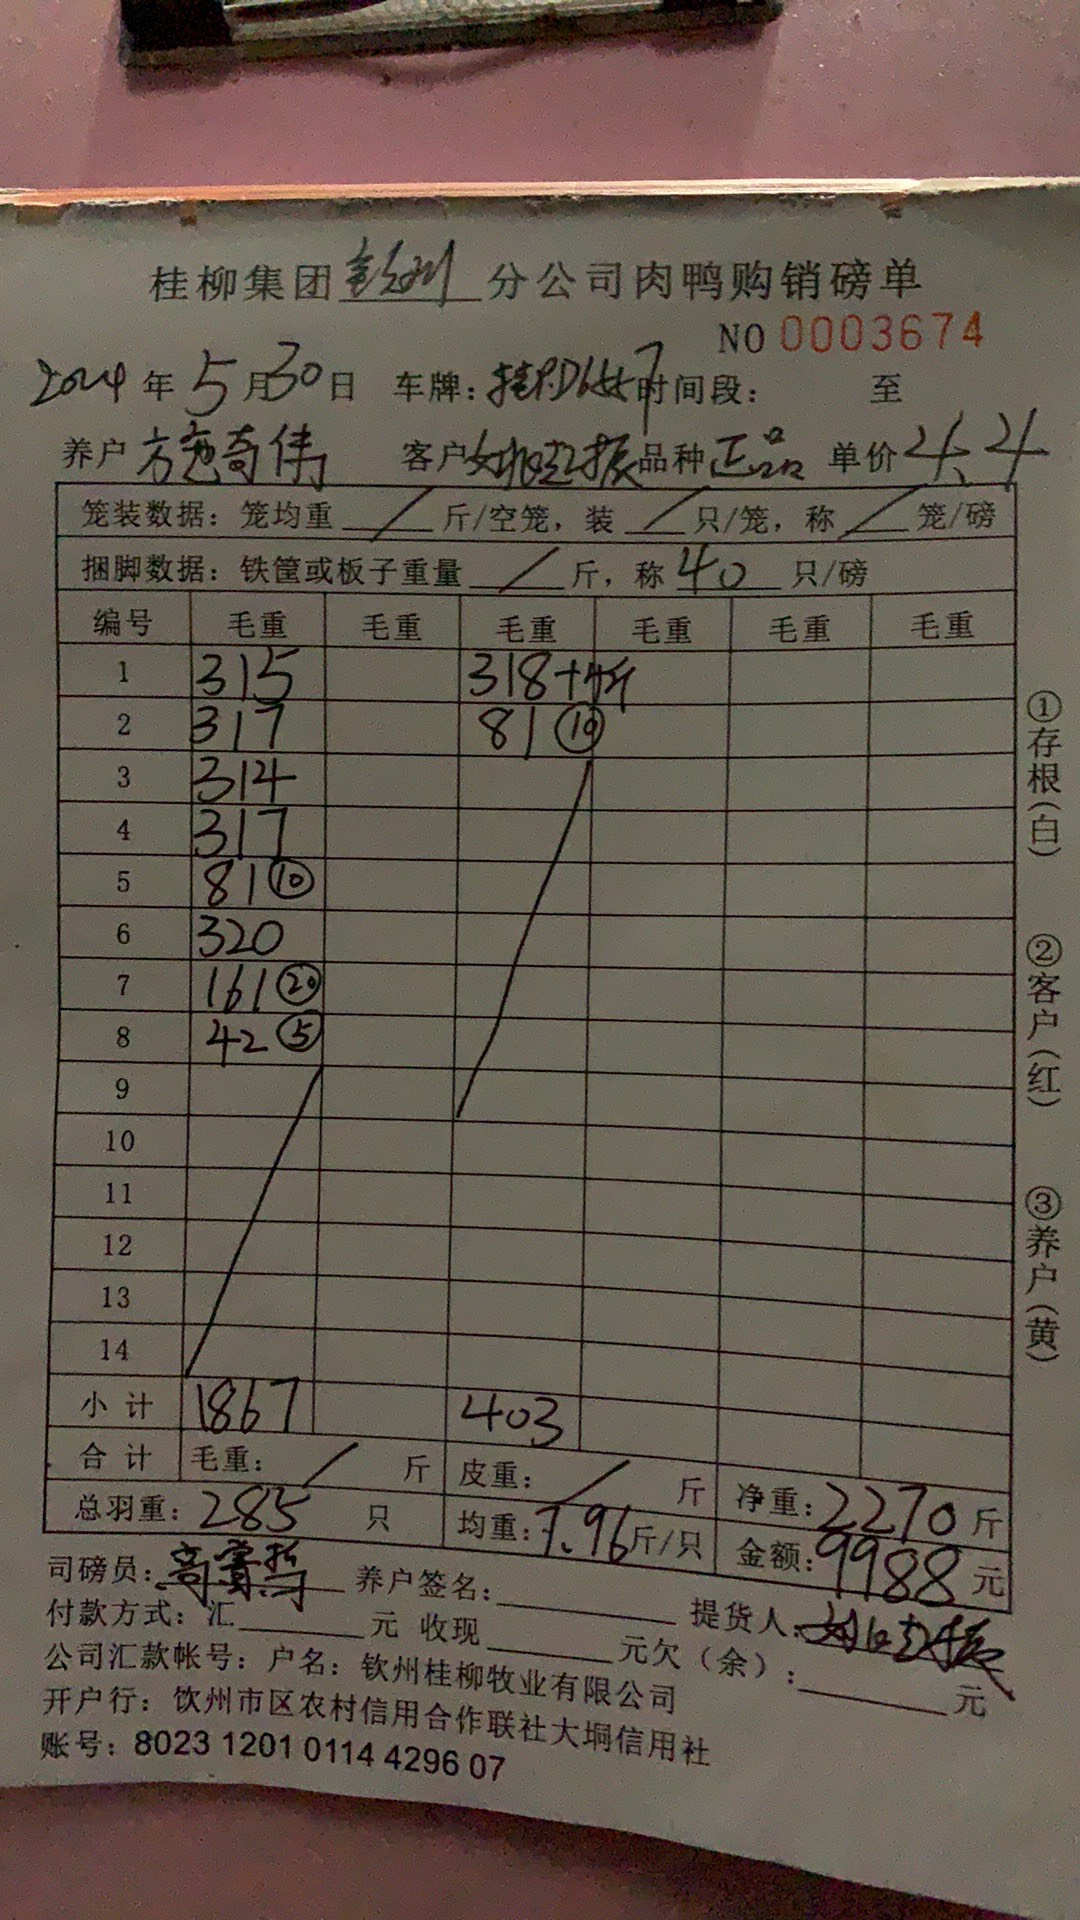 桂柳集团钦州分公司肉鸭购销磅单
NO 0003674
2024年5月30日 车牌: 时间段: 至
养户 客户 品种 正品 单价 4.4
笼装数据: 笼均重 / 斤/空笼, 装 / 只/笼, 称 / 笼/磅
捆脚数据: 铁筐或板子重量 / 斤, 称 40 只/磅
编号 毛重 毛重 毛重 毛重 毛重 毛重
1 315 318+4斤
2 317 81⑩
3 314
4 317
5 81⑩
6 320
7 161⑳
8 42⑤
9
10
11
12
13
14
小计 1867 403
合计 毛重: / 斤 皮重: / 斤 净重: 2270 斤
总羽重: 285 只 均重: 7.96 斤/只 金额: 9988 元
司磅员: 养户签名: 提货人:
付款方式: 汇 元 收现 元欠(余): 元
公司汇款帐号: 户名: 钦州桂柳牧业有限公司
开户行: 饮州市区农村信用合作联社大垌信用社
账号: 8023 1201 0114 4296 07
①存根(白)
②客户(红)
③养户(黄)